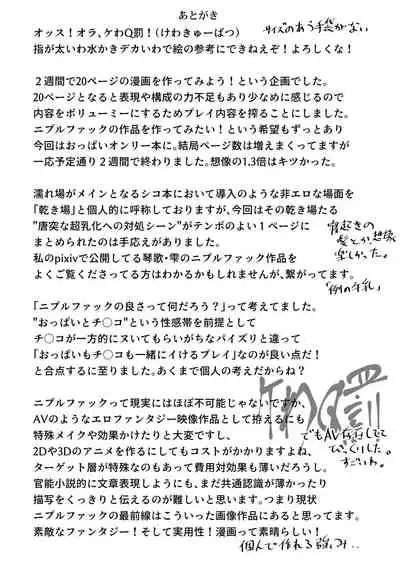 あとがき
オッス！オラ、ケわQ罰！（けわきゅーばつ）
サイズのあう手袋がない
指が太いわ水かきデカいわで絵の参考にできねえぞ！よろしくな！
２週間で20ページの漫画を作ってみよう！という企画でした。
20ページとなると表現や構成の力不足もあり少なめに感じるので
内容をボリューミーにするためプレイ内容を搾ることにしました。
ニプルファックの作品を作ってみたい！という希望もずっとあり
今回はおっぱいオンリー本に。結局ページ数は増えまくってますが
一応予定通り２週間で終わりました。想像の1.3倍はキツかった。
濡れ場がメインとなるシコ本において導入のような非エロな場面を
「乾き場」と個人的に呼称しておりますが、今回はその乾き場たる
"唐突な超乳化への対処シーン"がテンポのよい１ページに
まとめられたのは手応えがありました。
寝起きの
髪とか想像
楽しかった。
私のpixivで公開してる琴歌・雫のニプルファック作品を
よくご覧くださってる方はわかるかもしれませんが、繋がってます。
「例の牛乳」
「ニプルファックの良さって何だろう？」って考えてました。
"おっぱいとチ〇コ"という性感帯を前提として
チ〇コが一方的にヌいてもらいがちなパイズリと違って
「おっぱいもチ〇コも一緒にイけるプレイ」なのが良い点だ！
と合点するに至りました。あくまで個人の考えだからね？
ケわQ罰
ニプルファックって現実にはほぼ不可能じゃないですか、
AVのようなエロファンタジー映像作品として拵えるにも
特殊メイクや効果かけたりと大変ですし、
でもAV存在してて
びっくりした。
すごいわ。
2Dや3Dのアニメを作るにしてもコストがかかりますよね、
ターゲット層が特殊なのもあって費用対効果も薄いだろうし。
官能小説的に文章表現しようにも、まだ共通認識が薄かったり
描写をくっきりと伝えるのが難しいと思います。つまり現状
ニプルファックの最前線はこういった画像作品にあると思ってます。
素敵なファンタジー！そして実用性！漫画って素晴らしい！
個人で作れる強み..